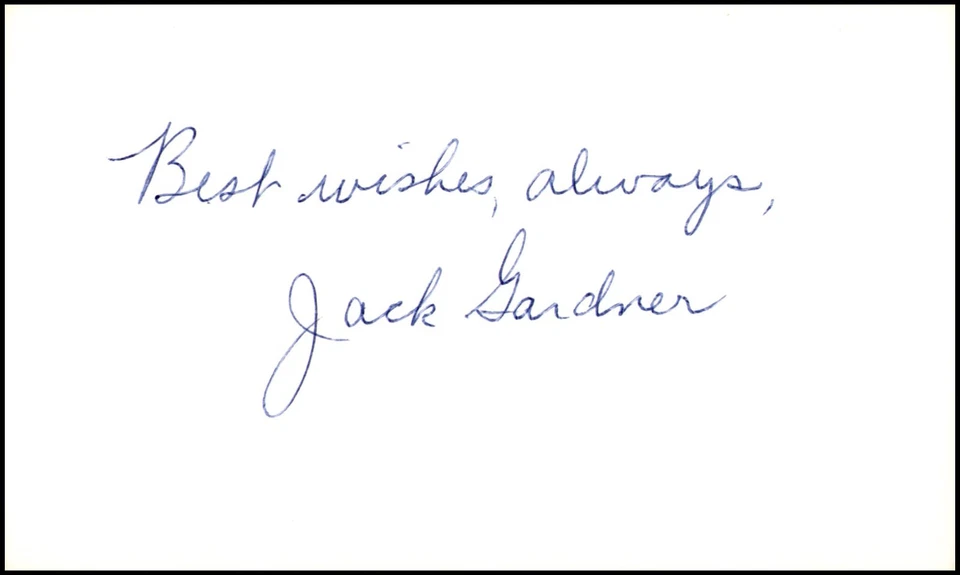 Best wishes, always,
Jack Gardner